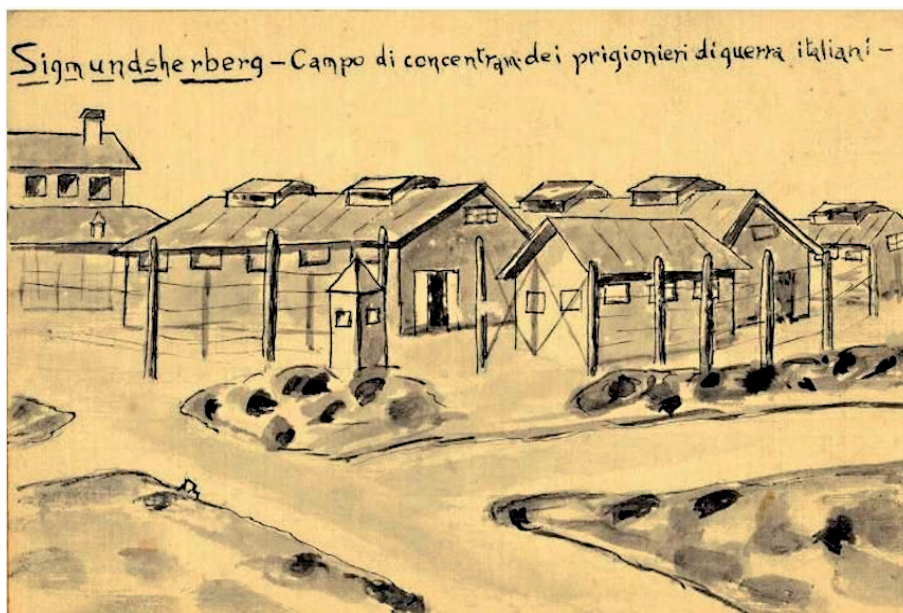 Sigmundsherberg – Campo di concentram. dei prigionieri di guerra italiani –